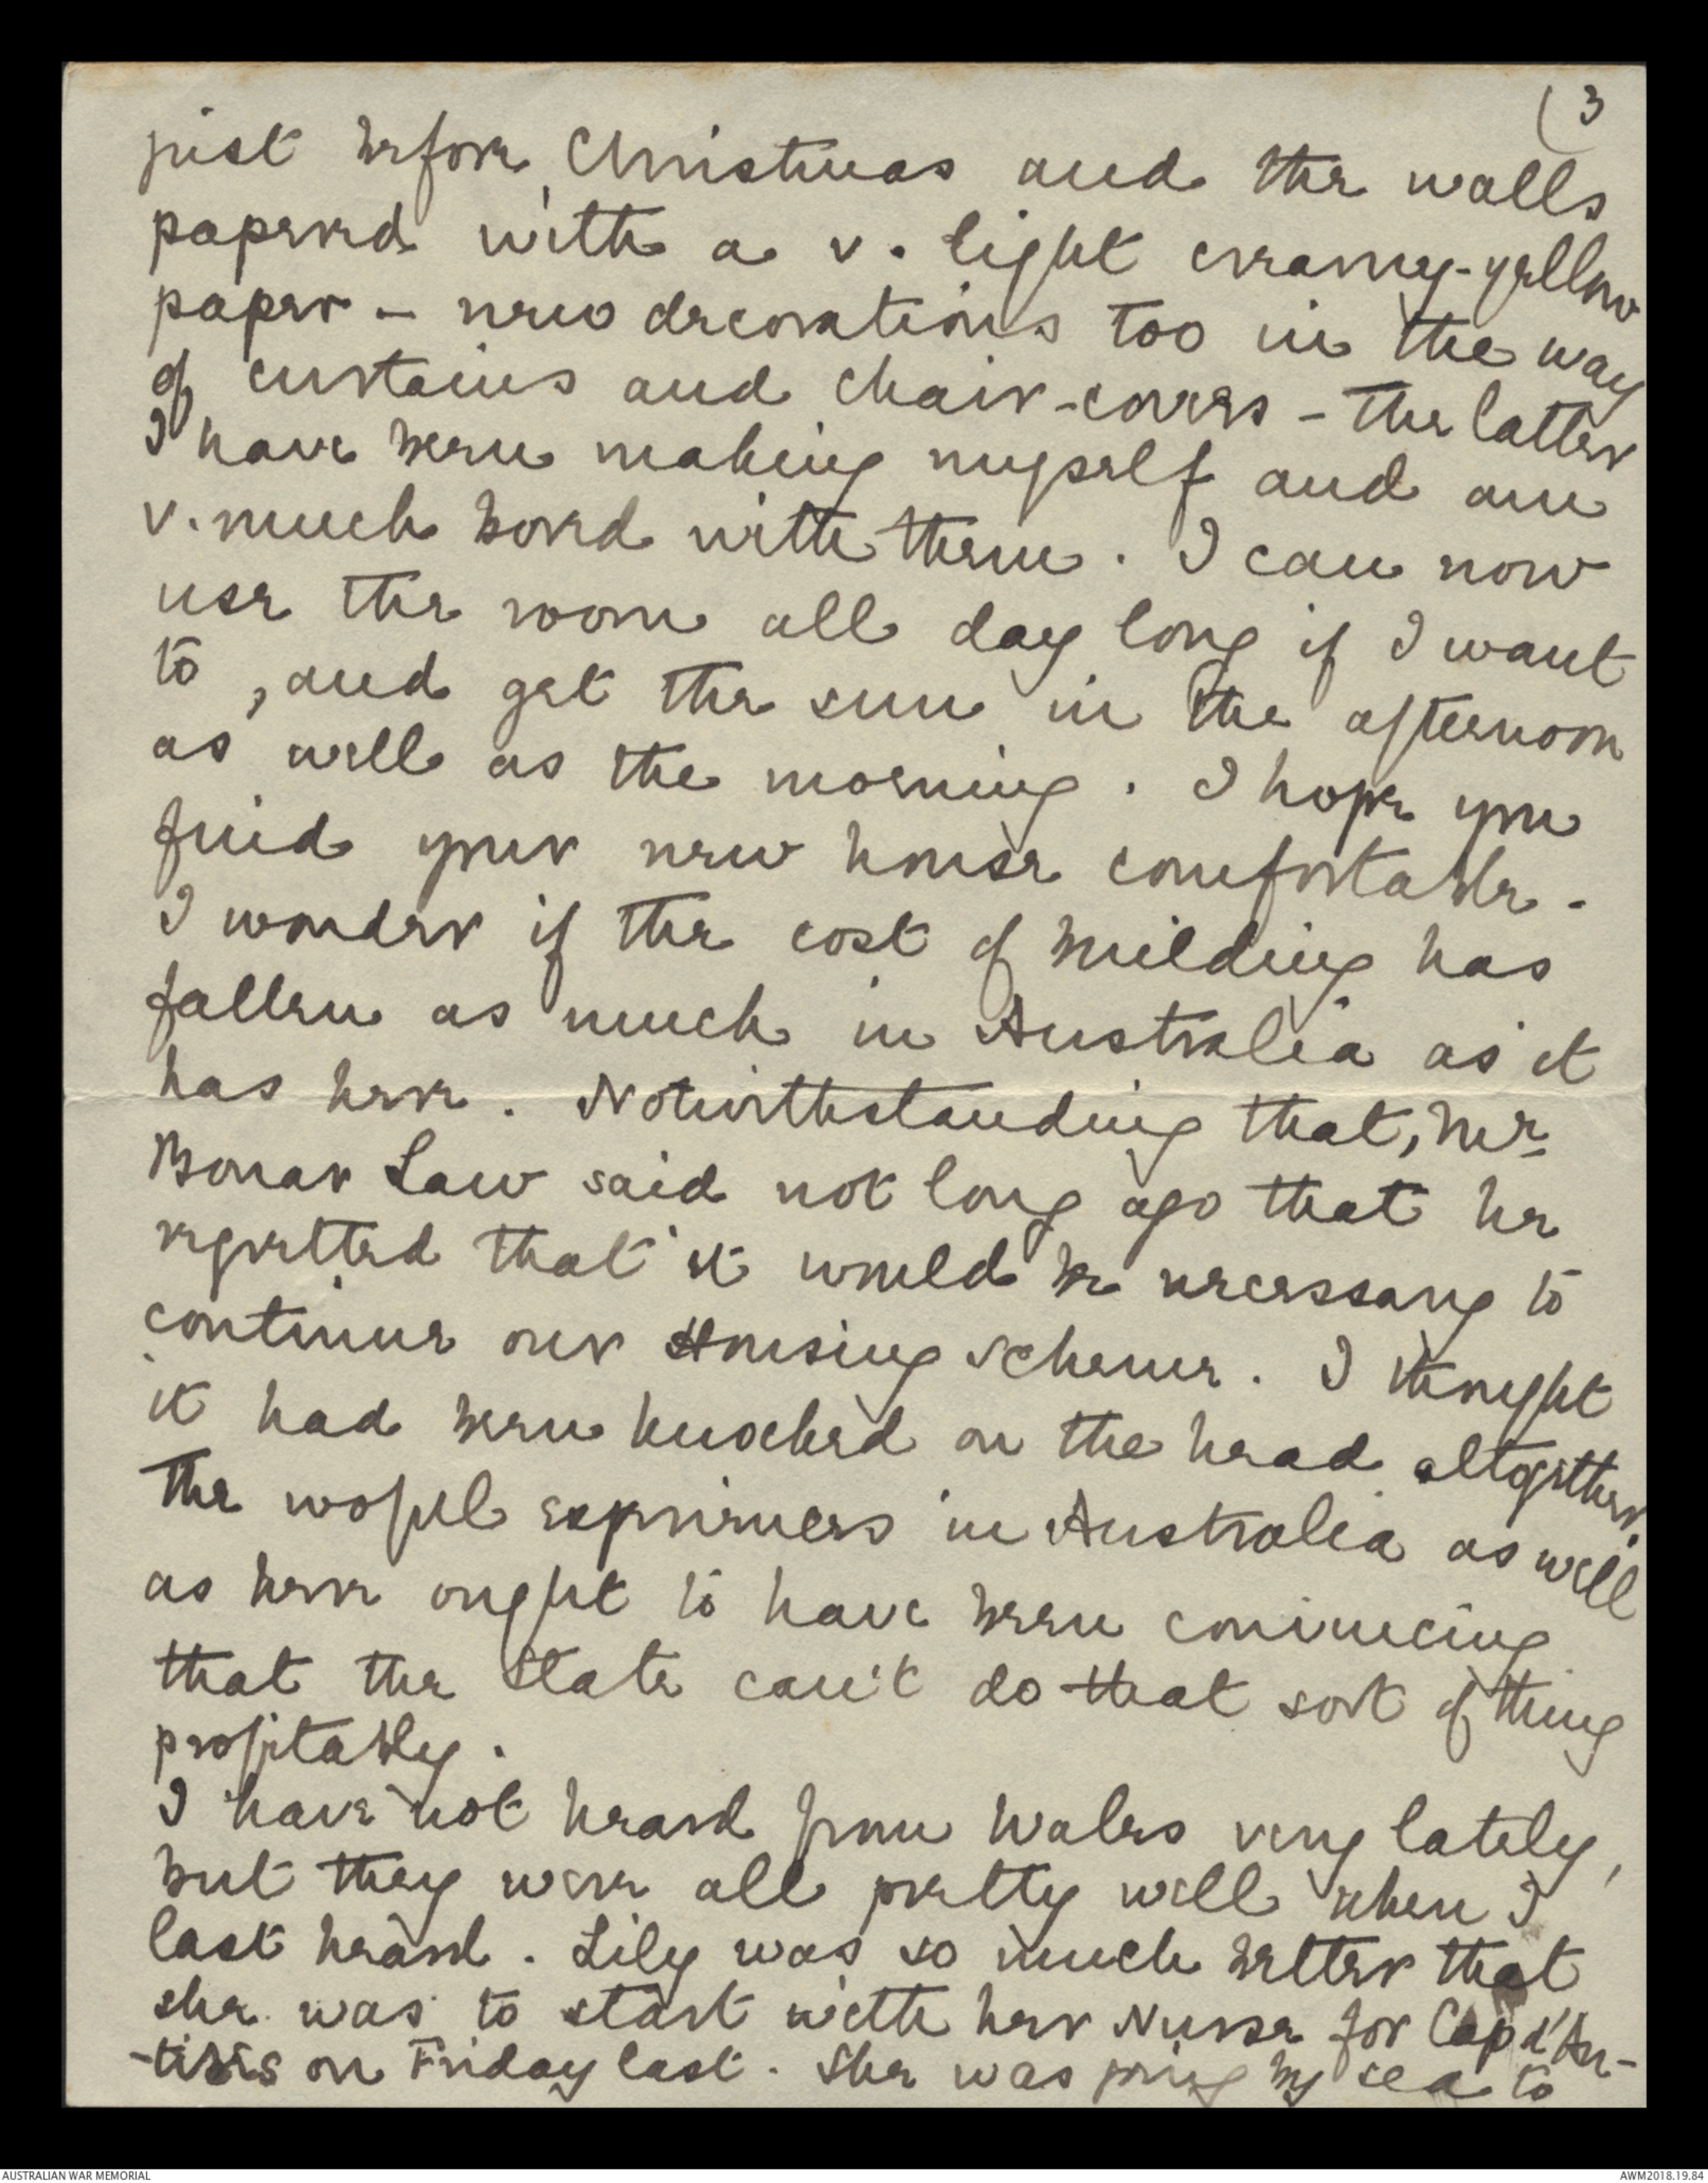 (3
just before Christmas and the walls
papered with a v. light creamy-yellow
paper - new decorations too in the way
of curtains and chair-covers - the latter
I have been making myself and am
v. much bored with them. I can now
use the room all day long if I want
to, and get the sun in the afternoon
as well as the morning. I hope you
find your new house comfortable -
I wonder if the cost of building has
fallen as much in Australia as it
has here. Notwithstanding that, Mr
Bonar Law said not long ago that he
regretted that it would be necessary to
continue our Housing Scheme. I thought
it had been knocked on the head altogether.
The woful experiences in Australia as well
as here ought to have been convincing
that the State can't do that sort of thing
profitably.
I have not heard from Wales very lately,
but they were all pretty well when I
last heard. Lily was so much better that
she was to start with her Nurse for Cap d'An-
-tibes on Friday last. She was going by sea to
AUSTRALIAN WAR MEMORIAL
AWM2018.19.84